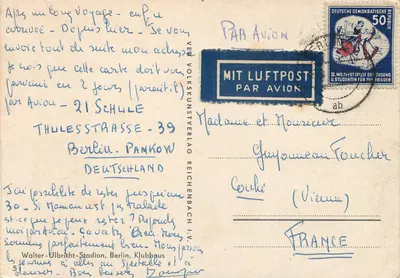 Après un long voyage - enfin
arrivée - Depuis hier - Je vous
envoie tout de suite mon adresse
je crois que cette carte doit vous
parvenir en 2 jours (parait-il)
par Avion - 21 SCHULE
THULESSTRASSE - 39
Berlin - PANKOW
DEUTSCHLAND
J'ai possibilité de rester jusqu'au
30 - Si Maman est pas malade
est-ce que je peux rester? Répondez
moi par Avion. Ça va très bien. Nous
sommes parfaitement bien. Nous passons
les journées à aller au spectacle et à
danser. Bons baisers
Walter-Ulbricht-Stadion, Berlin, Klubhaus
VEB VOLKSKUNSTVERLAG REICHENBACH I. V.
PAR AVION
MIT LUFTPOST
PAR AVION
DEUTSCHE DEMOKRATISCHE REPUBLIK
50
III. WELTFESTSPIELE DER JUGEND
U. STUDENTEN FÜR DEN FRIEDEN
ab
Madame et Monsieur
Guyonneau Foucher
Couhé
(Vienne)
FRANCE